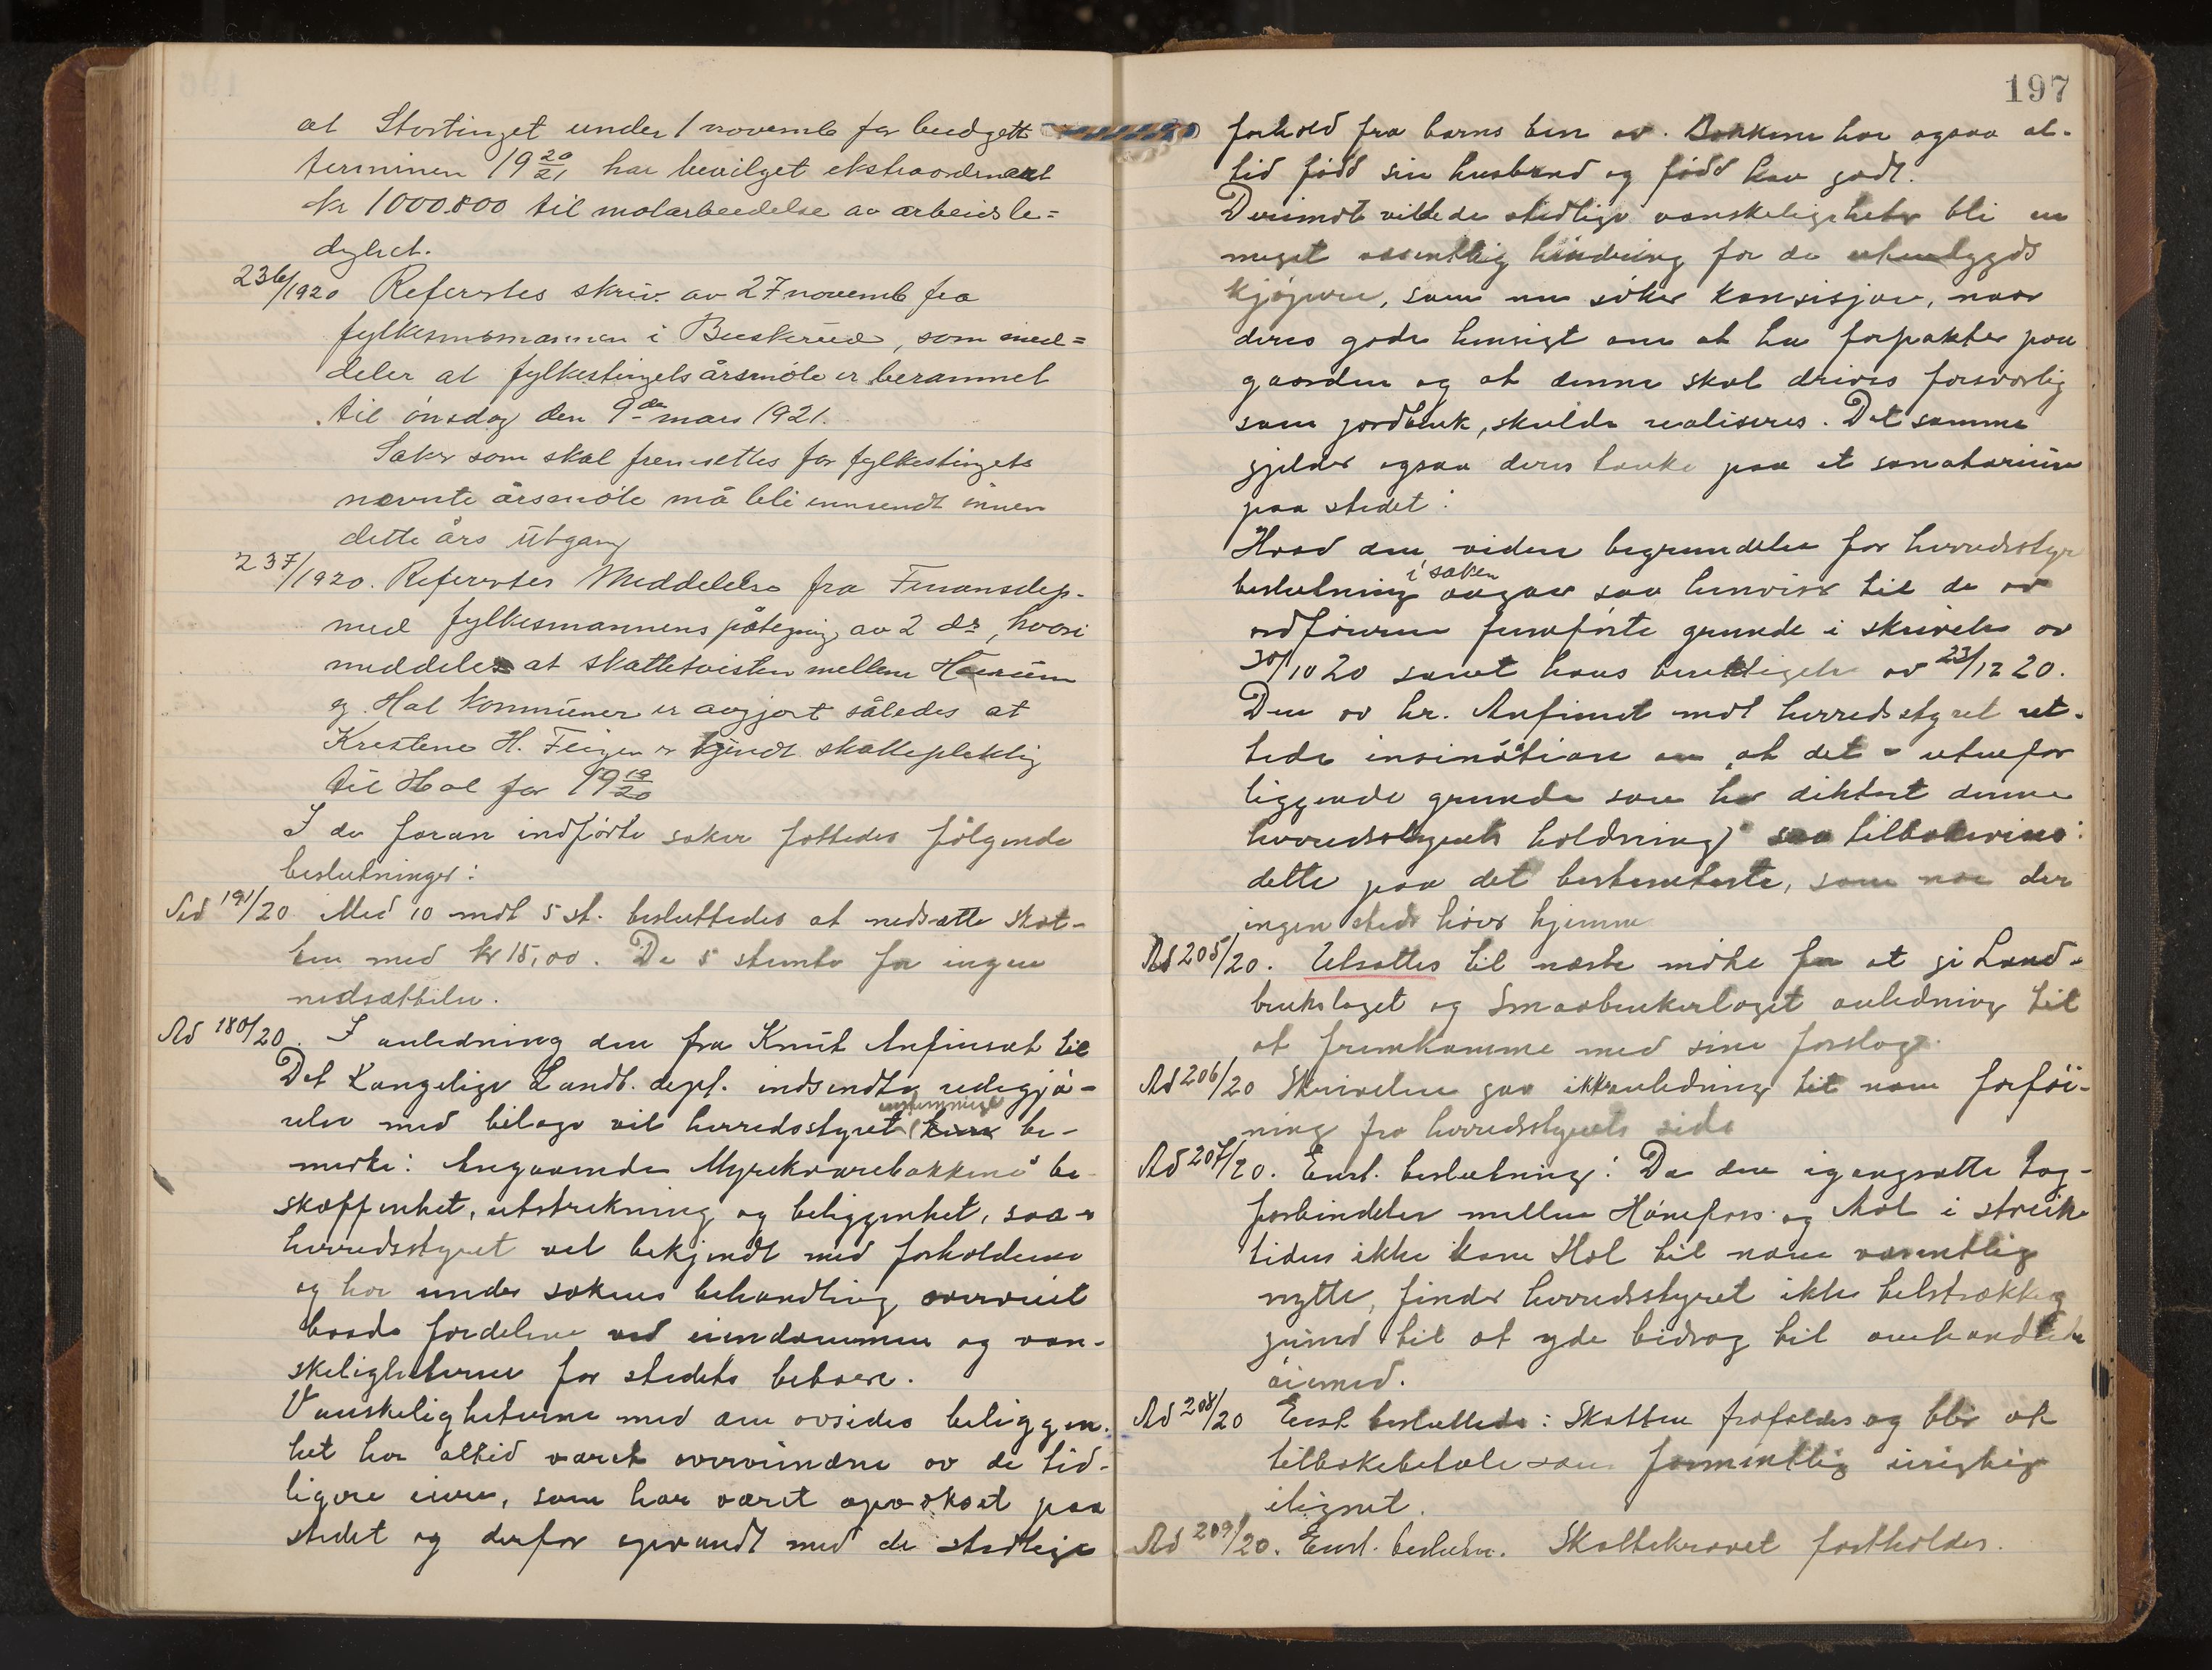 at Stortinget under 1 novemb for budgett
terminen 19 20/21 har bevilget ekstraordinært
kr 1000.000 til motarbeidelse av arbeidsle=
dighet.
236/1920 Refertes skriv. av 27 novemb fra
fylkesmannen i Buskerud, som med=
deler at fylkestingets årsmöte er berammet
til onsdag den 9de mars 1921.
Saker som skal fremsettes for fylkestingets
nævnte årsmöte må bli innsendt innen
dette års utgang
237/1920. Refertes Meddelelse fra Finansdep.
med fylkesmannens påtegning av 2 ds, hvori
meddeles at skattetvisten mellem
og Hol kommuner er avgjort således at
Kristene H. er kjendt skattepliktig
til Hol for 19 19/20
I de foran indförte saker fattedes fölgende
beslutninger:
Ad 191/20 Med 10 mot 5 st. besluttedes at nedsætte skat-
ten med kr 15,00. De 5 stemte for ingen
nedsættelse.
Ad 180/20. I anledning den fra Knut Anfinset til
Det Kongelige Landb. dept. indsendte redegjö-
relse med bilage vil herredsstyret enstemmige be-
merke: Angaaende Myrekvarebakkens be-
skaffenhet, utstrekning og beliggenhet, saa er
herredsstyret vel bekjendt med forholdene
og har under sakens behandling overveiet
baade fordelene ved eiendommen og van-
skelighetene for stedets beboere.
Vanskelighetene med den avsides beliggen-
het har altid været overvundne av de tid-
ligere eiere, som har været opvokset paa
stedet og derfor opvandt med de stedlige
197
forhold fra barns ben av. Bakken har ogsaa al-
tid född sin husbond og född ham godt.
Derimot vil de stedlige vanskeligheter bli en
meget væsentlig hindring for de utenbygds
kjöpere, som nu söker konsesjon, naar
deres gode hensigt om at ha forpakter paa
gaarden og at denne skal drives forsvarlig
som jordbruk, skulde realiseres. Det samme
gjelder ogsaa deres tanke paa et sanatorium
paa stedet.
Hvad den videre begrundelse for herredsstyr
beslutning i saken angaar saa henvises til de av
ordföreren fremförte grunde i skrivelse av
30/10 20 samt hans av 23/12 20.
Den av hr. Anfinset mot herredsstyret ret-
tede insinuation om "at det er utenfor
liggende grunde som har diktert denne
herredsstyrets holdning" saa tilbakevises
dette paa det bestemteste, som noe der
ingen steds hörer hjemme
Ad 205/20. Utsættes til næste möte for at gi Land-
brukslaget og Smaabrukerlaget anledning til
at fremkomme med sine forslag.
Ad 206/20 Skrivelsen gav ikke anledning til noen forföi-
ning fra herredsstyrets side
Ad 207/20. Enst. beslutning: Da den igangsatte tog-
forbindelse mellem Hönefoss og Aal i streike
tiden ikke kom Hol til noen væsentlig
nytte, finder herredsstyret ikke tilstrækkelig
grund til at yde bidrag til omhandlede
öiemed.
Ad 208/20 Enst. besluttede: Skatten frafaldes og blir at
tilbakebetale som formentlig urigtig
ilignet.
Ad 209/20. Enst. beslutn. Skattekravet fastholdes.